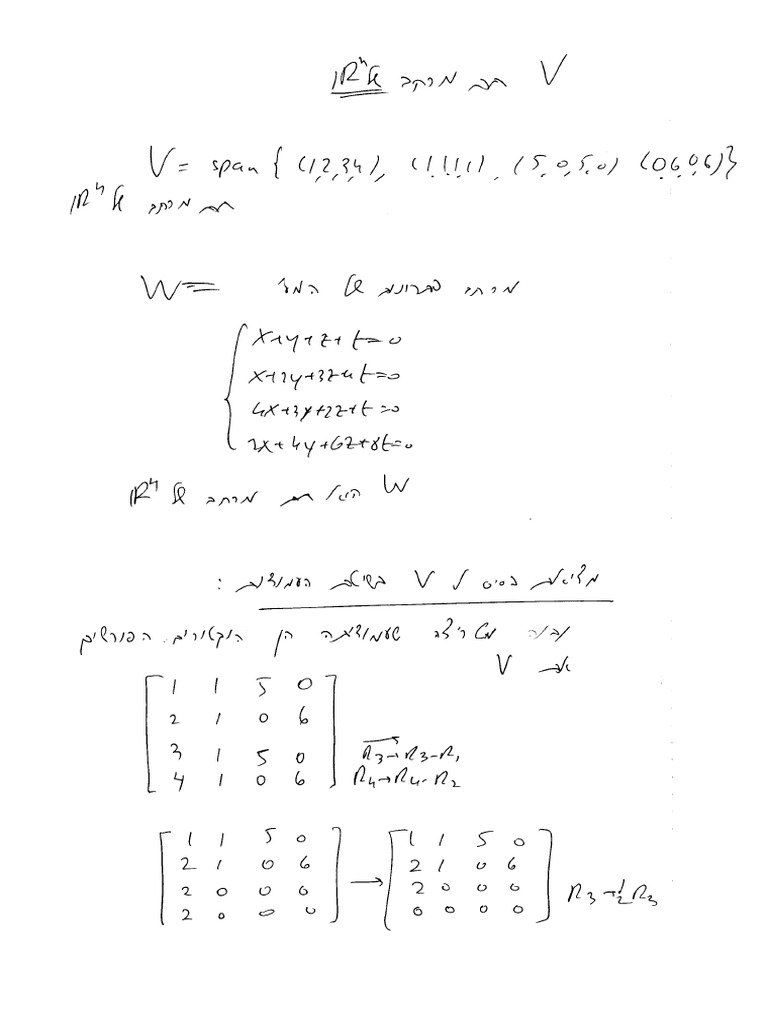 V תת מרחב של ℝⁿ
V = span { (1,2,3,4), (1,1,1,1), (5,0,5,0) (0,6,0,6)}
תת מרחב של ℝ⁴
W = מרחב פתרונות של המע'
x+y+z+t=0
x+2y+3z+4t=0
4x+3y+2z+t=0
2x+4y+6z+8t=0
W הוא תת מרחב של ℝ⁴
מציאת בסיס ל V בשיטת העמודות :
נבנה מטריצה שעמודותיה הן הוקטורים הפורשים
את V
[ 1 1 5 0
2 1 0 6
3 1 5 0 R₃→R₃-R₁
4 1 0 6 ] R₄→R₄-R₂
[ 1 1 5 0 ] [ 1 1 5 0 ]
[ 2 1 0 6 ] [ 2 1 0 6 ]
[ 2 0 0 0 ] → [ 2 0 0 0 ] R₃→½R₃
[ 2 0 0 0 ] [ 0 0 0 0 ]